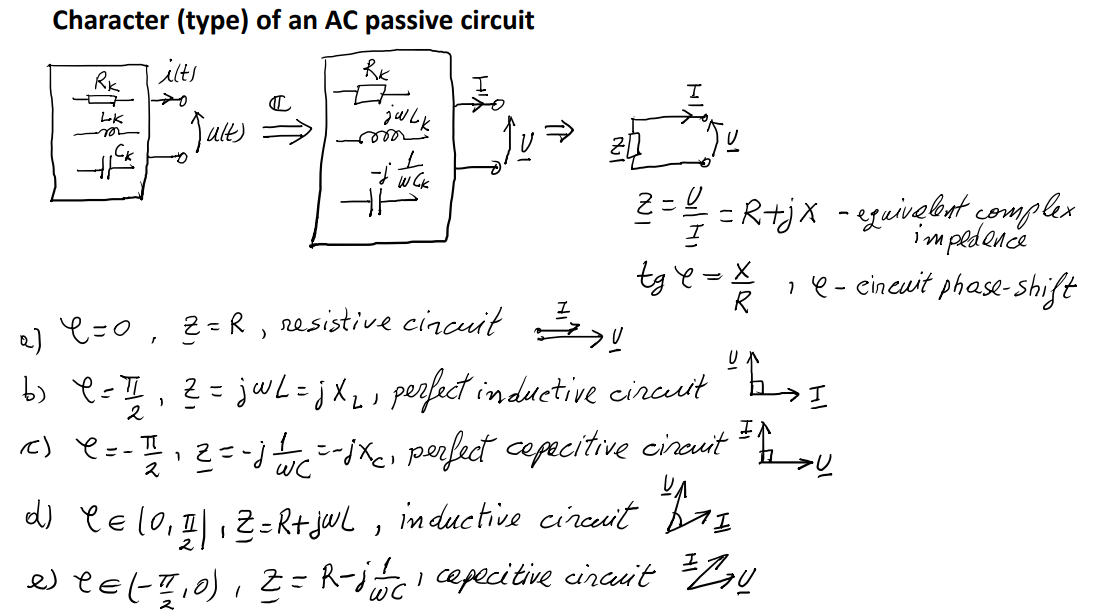 Character (type) of an AC passive circuit
R_K i(t)
L_K u(t)
C_K
ℂ ⇒
R_K I
jωL_K U
-j 1/ωC_K
⇒
I
Z U
Z = U/I = R+jX - equivalent complex
impedence
tg φ = X/R , φ - circuit phase-shift
a) φ=0 , Z = R , resistive circuit I U
b) φ = π/2 , Z = jωL = jX_L , perfect inductive circuit U I
c) φ = -π/2 , Z = -j 1/ωC = -jX_C , perfect capecitive circuit I U
d) φ ∈ (0, π/2) , Z = R+jωL , inductive circuit U I
e) φ ∈ (-π/2, 0) , Z = R-j 1/ωC , capecitive circuit I U